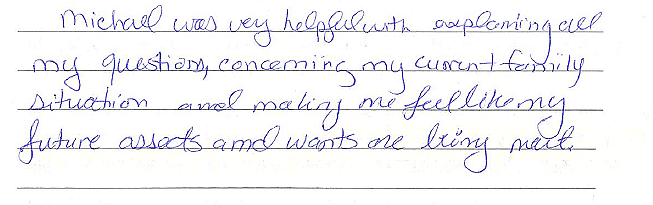 Michael was very helpful with explaining all
my questions, concerning my current family
situation and making me feel like my
future assets and wants are being met.